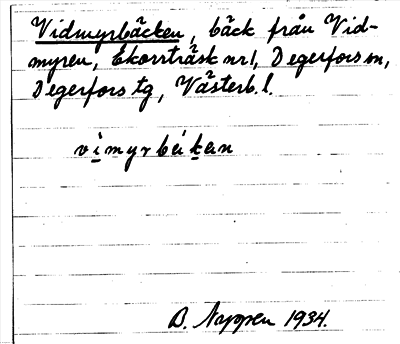 Vidmyrbäcken, bäck från Vid-
myren, Ekorrträsk nr1, Degerfors sn,
Degerfors tg, Västerb. l.
vimyrbäkan
B. Nappen 1934.